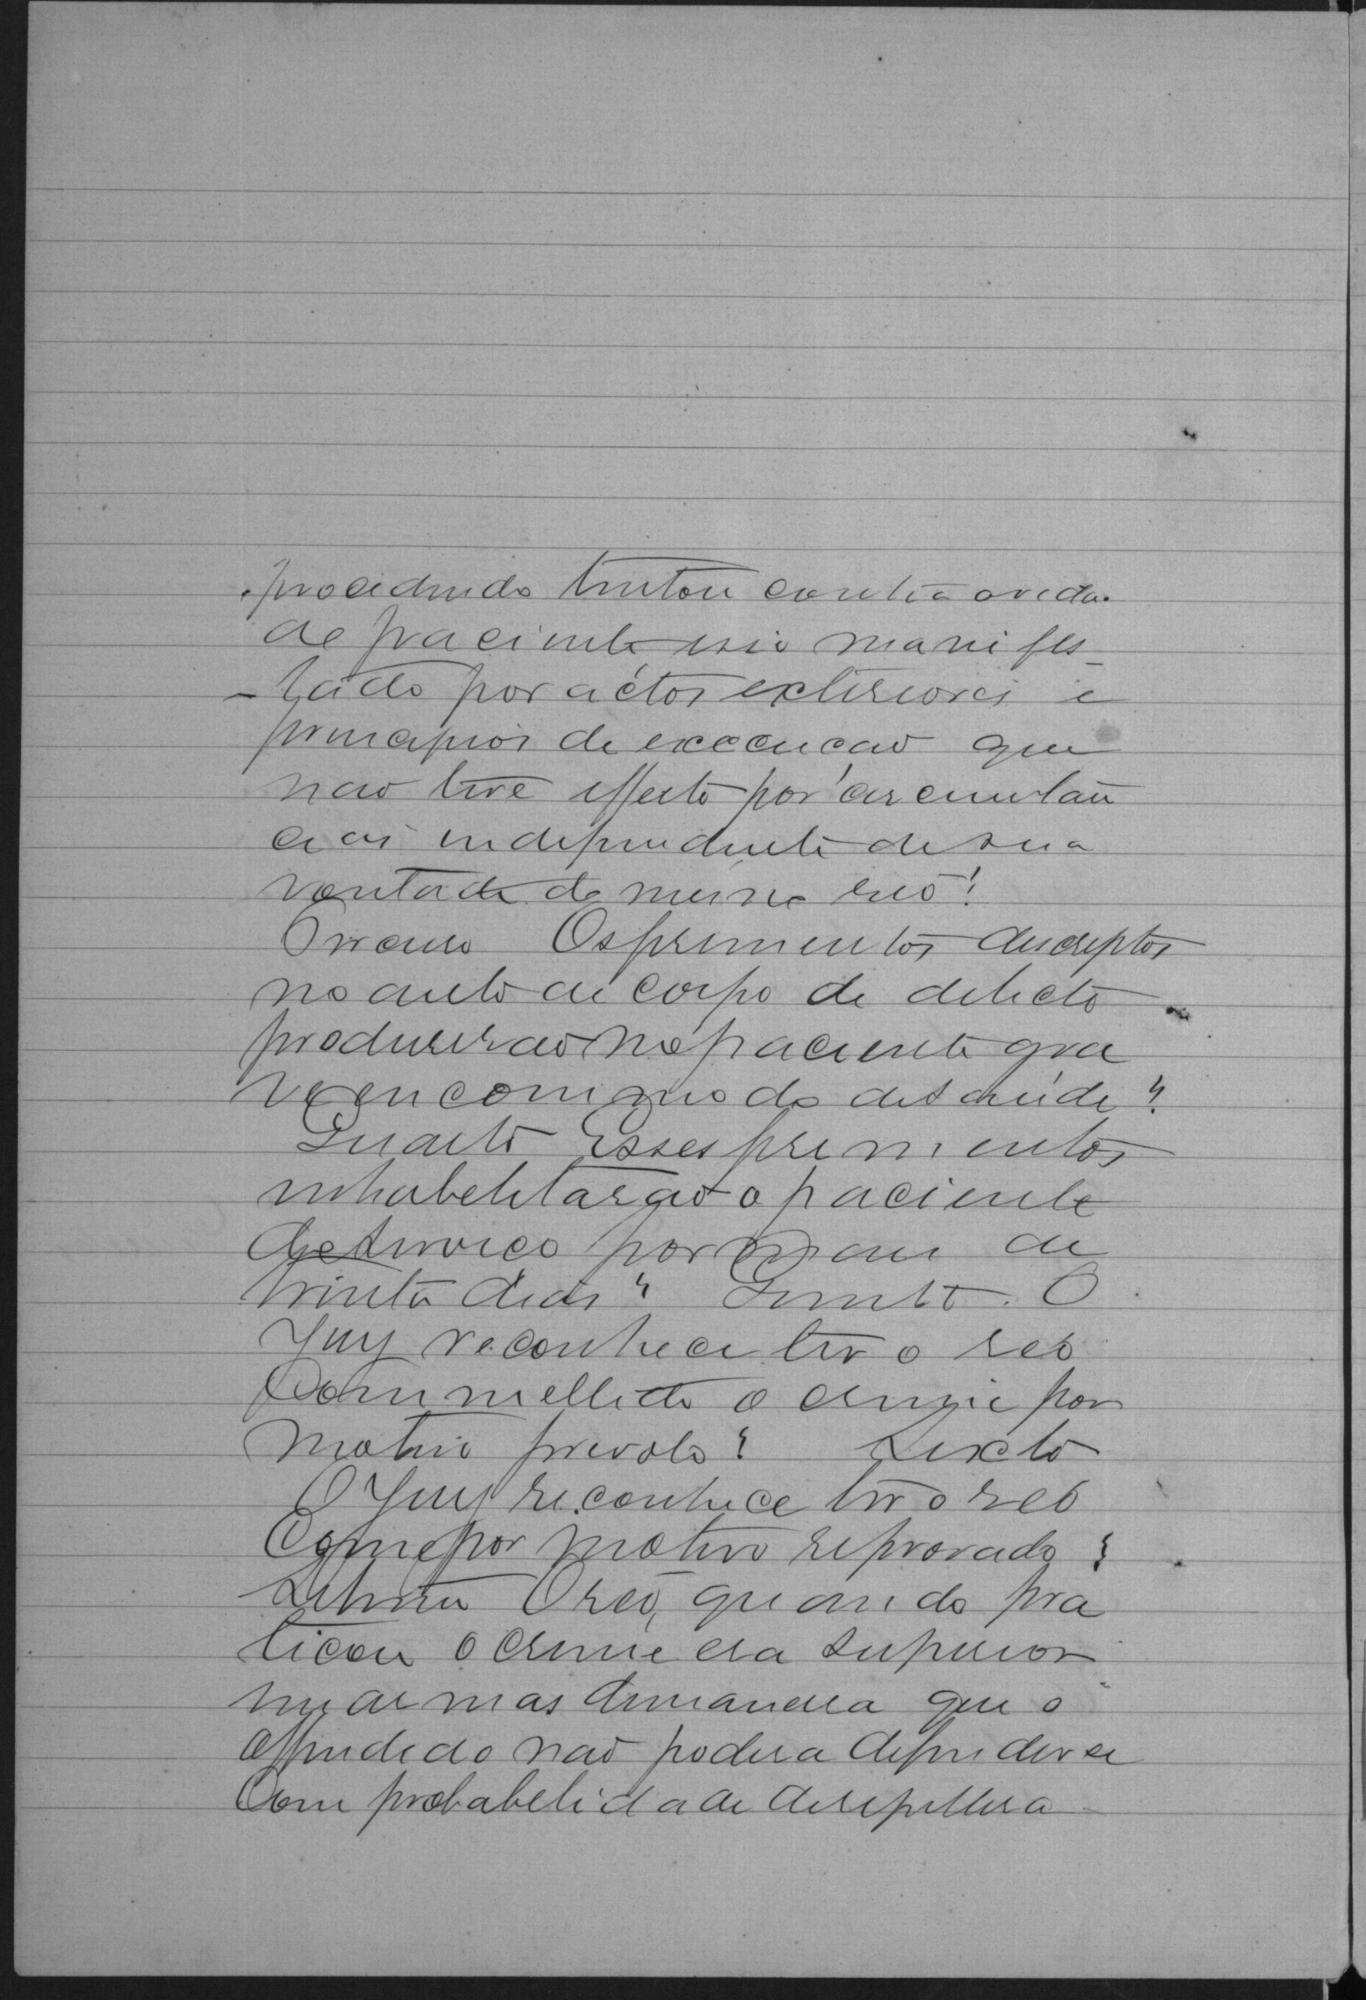 procedendo tentou contra a vida
de paciente isio manifes_
_tado por actos exteriores e
principios de execucao que
nao teve effeito por circunstan
cias independente de sua
vontade do mesmo reo?
Os ferimentos descriptos
no auto de corpo de delicto
produzirao no paciente gra
ve encommodo de saúde?
Quarto Esses ferimentos
inhabelitarão o paciente
de serviço por mais de
trinta dias? Quinto. O
Jury reconhece ter o reo
Commettido o crime por
motivo frivolo? Sexto
O Jury reconhece ter o reo
Crime por motivo reprovado?
Setimo O reo, quando pra
ticou o crime era superior
em armas de maneira que o
offendido nao podera defender se
Com probabelidade de repellir a